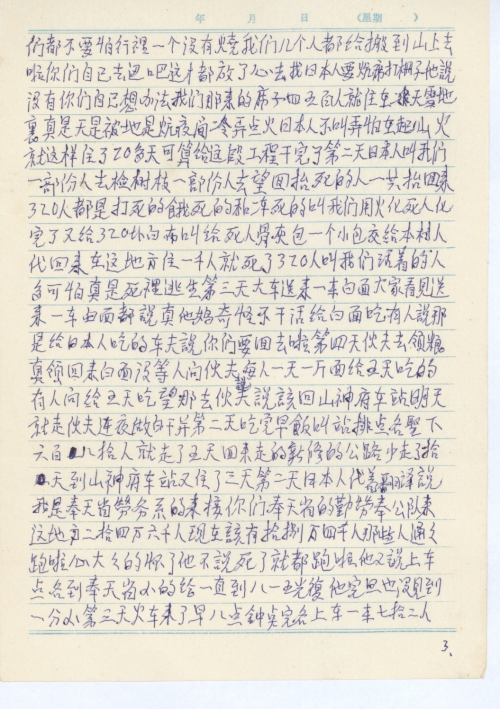 年 月 日 (星期 )
们都不要怕行李一个没有烧我们几个人都给搬到山上去
啦你们自己去迴吧这才都放了心去找日本人要炕席打棚子他说
没有你们自己想办法我们那来的席子四五百人就住在天雪地
裏真是天是被地是炕夜间冷弄点火日本人不叫弄怕在起山火
就这样住了20多天可算给这段工程干完了第二天日本人叫我们
一部份人去检树枝一部份人去望回抬死的人一共抬回来
320人都是打死的餓死的和冻死的叫我们用火化死人化
完了又给320块白布叫给死人骨灰包一个小包交给本村人
代回来在这地方住一千人就死了320人叫我们活着的人
多可怕真是死裡逃生第三天大车送来一车白面大家看见送
来一车白面都說真他妈奇怪不干活给白面吃有人說那
是给日本人吃的车夫說你们要回去啦第四天伙夫去领粮
真领回来白面没等人问伙夫每人一天一斤面给五天吃的
有人问给五天吃望那去伙夫說該回山神府车站明天
就走伙夫连夜做白干粮第二天吃完早飯叫站排点名整下
六百八人就走了五天回来走的新修的公路少走了拾
天到山神府车站又住了三天第二天日本人代着翻译説
我是奉天省劳务系的来接你们奉天省的勤劳奉公队来
这地方二拾四万六千人现在該有拾捌万四千人那些人通通
跑啦心大大的坏了他不説死了就都跑啦他又説上车
点名到奉天省小的给一直到八一五光復他完旦也没見到
一分小第三天火车来了早八点钟点完名上车一车七拾二人
3、